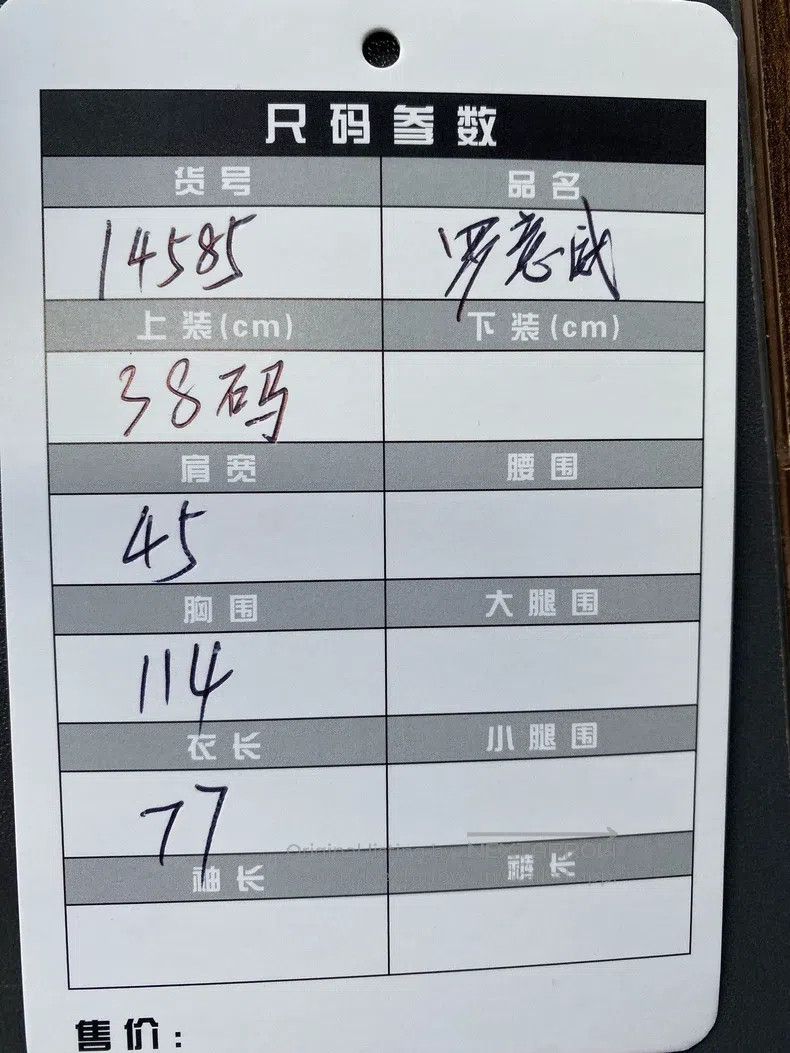 尺码参数
货号 品名
14585 罗意威
上装(cm) 下装(cm)
38码
肩宽 腰围
45
胸围 大腿围
114
衣长 小腿围
77
Original listing
袖长 裤长
售价: